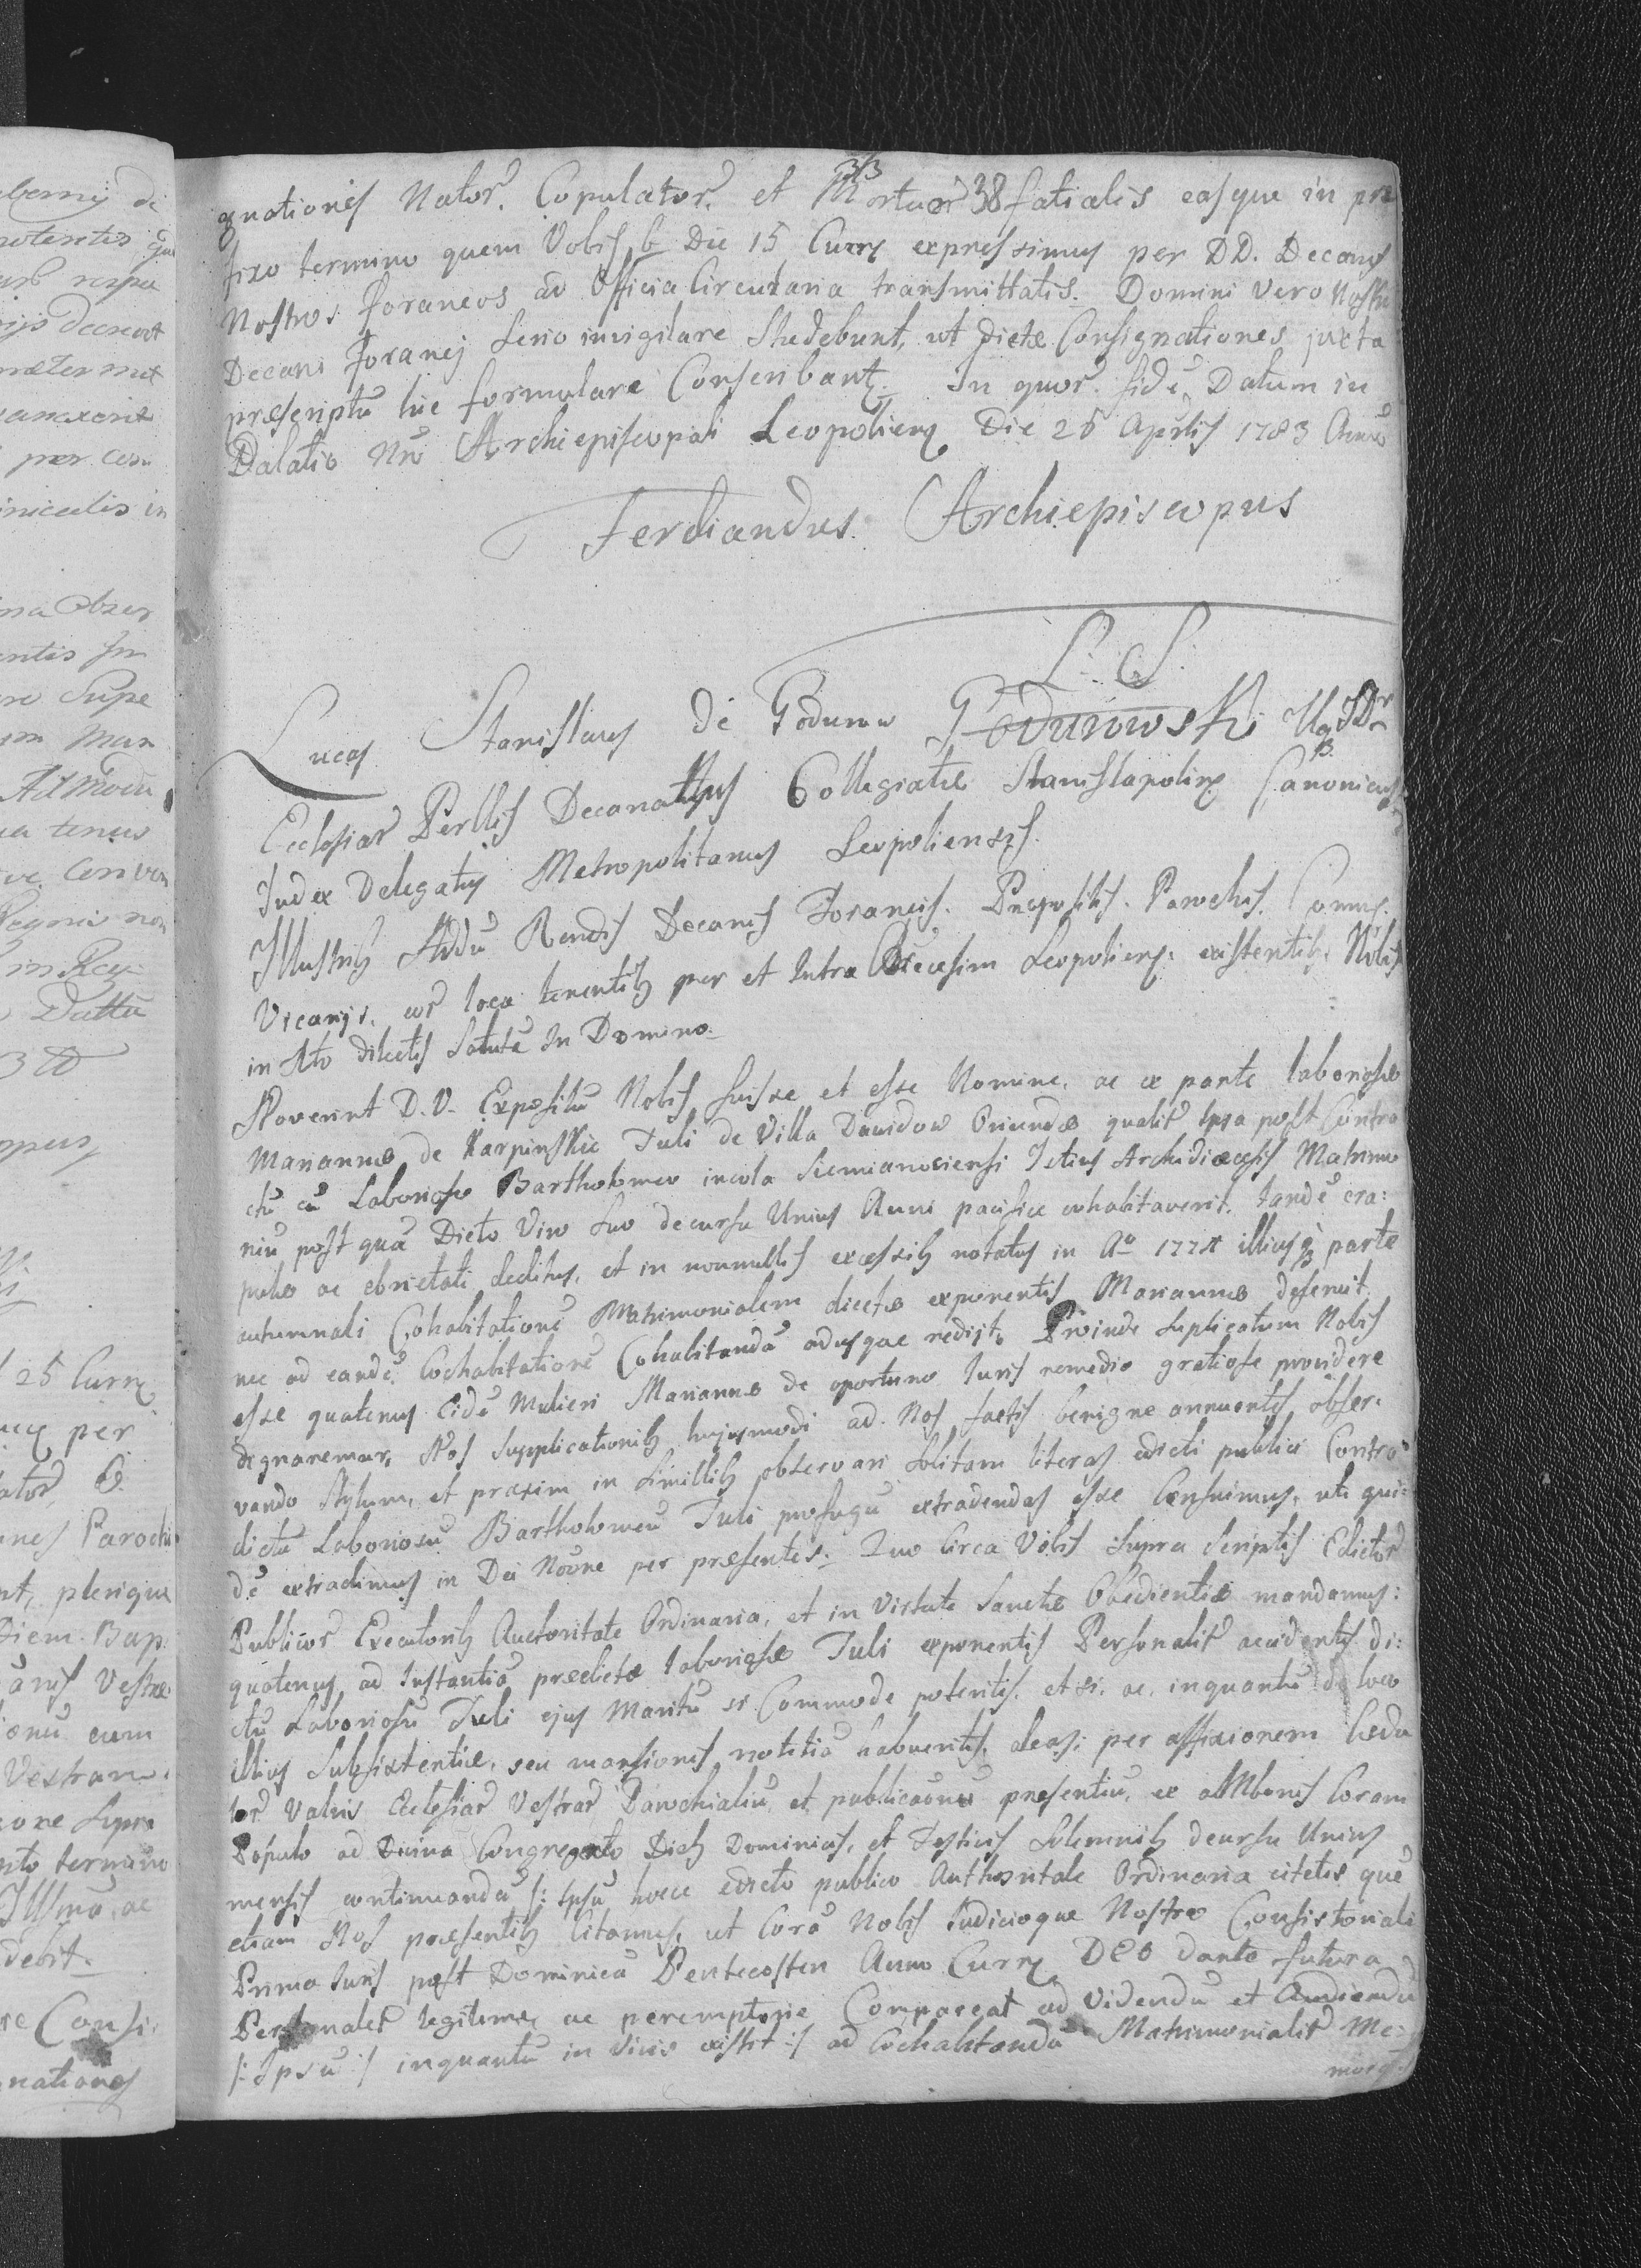 gnationes Nator. Copulator. et Mortuor 38 fatiales easque in præ
fixo termino quem Vobis sub Die 15 Curr expressimus per DD. Decanos
Nostros foraneos ad Officia Circularia transmittatis. Domini vero Nostri
Decani foranei serio invigilare studebunt, ut dictæ Consignationes juxta
præscriptu hic formulare Conscribant. In quor. fidē. Datum in
Palatio Nro Archiepiscopali Leopolien Die 25 Aprilis 1783 Anno
Ferdinandus Archiepiscopus
L. S.
Lucas Stanislaus de Godurow Godurowski
Ecclesiar Collegiatæ Stanislapolien Canonicus
Judex Delegatus Metropolitanus Leopoliensis.
Illustribȝ Addu Rendis Decanis Foraneis. Præpositis. Parochis. Comm.
Vicarijs. eor loca tenentibȝ per et Intra Diœcesim Leopolien. existentibȝ. Nobis
in Xto dilectis Salutē In Domino.
Noverint D.V. Expositū Nobis fuisse et esse Nomine. ac ex parte laboriosæ
Mariannæ de Karpinskie Tuli de Villa Dawidow Oriundæ qualitr Ipsa post Contra
ctū cū Laborioso Bartholomeo incola Siemianociensi Istius Archidiœcesis Matrimo
niū post quā Dicto Viro suo decursu Unius Anni pacifice cohabitaverit. tandē cra:
pulæ ac ebrietati deditus, et in nonnullis excessibȝ notatus in Aº 177 illiusqȝ parte
autumnali Cohabitationē Matrimonialem dictæ exponentis Mariannæ deseruit.
nec ad eandē Cochabitationē Cohabitandā adusque redijt. Proinde suplicatum Nobis
esse quatenus Eidē Mulieri Mariannæ de oportuno Juris remedio gratiose providere
dignaremur, Nos supplicationibȝ hujusmodi ad Nos factis benigne annuentes obser:
vando Stylum, et praxim in similibȝ observari solitam literas edicti publici Contra
dictū Laboriosū Bartholomeū Tuli profugū extradendas esse Censuimus, uti qui:
dē extradimus in Dei Noōne per præsentes. Quo Circa Vobis supra scriptis Edictor
Publicor Executoribȝ Auctoritate Ordinaria, et in Virtute Sanctæ Obedientiæ mandamus:
quatenus, ad Instantiā prædictæ laboriosæ Tuli exponentis Personalitr accidentes di:
ctū Laboriosū Tuli ejus Maritū si Commode poteritis. et si. ac. inquantū de loco
illius Subsistentiæ, seu mansionis notitiā habueritis. aleas: per affixionem hedu
lar Valvis Ecclesiar Vestrar Parochialiū, et publicaōnē præsentiū, ex aMbonis Coram
Populo ad Divina Congregato Diebȝ Dominicis, et Festivis solemnibȝ decursu Unius
mensis continuandā /: Ipsū hocce edicto publico Authoritate Ordinaria citetis quē
etiam Nos præsentibȝ Citamus, ut Corā Nobis Judicioque Nostro Consistoriali
Prima Juris post Dominicā Pentecosten Anno Curr DEO dante futura
Personalitr legitime, ac peremptorie Compareat ad Videndū et Audiendū
/: Ipsū :/ inquantū in vivis existit :/ ad Cochabitandū Matrimonialitr Me: